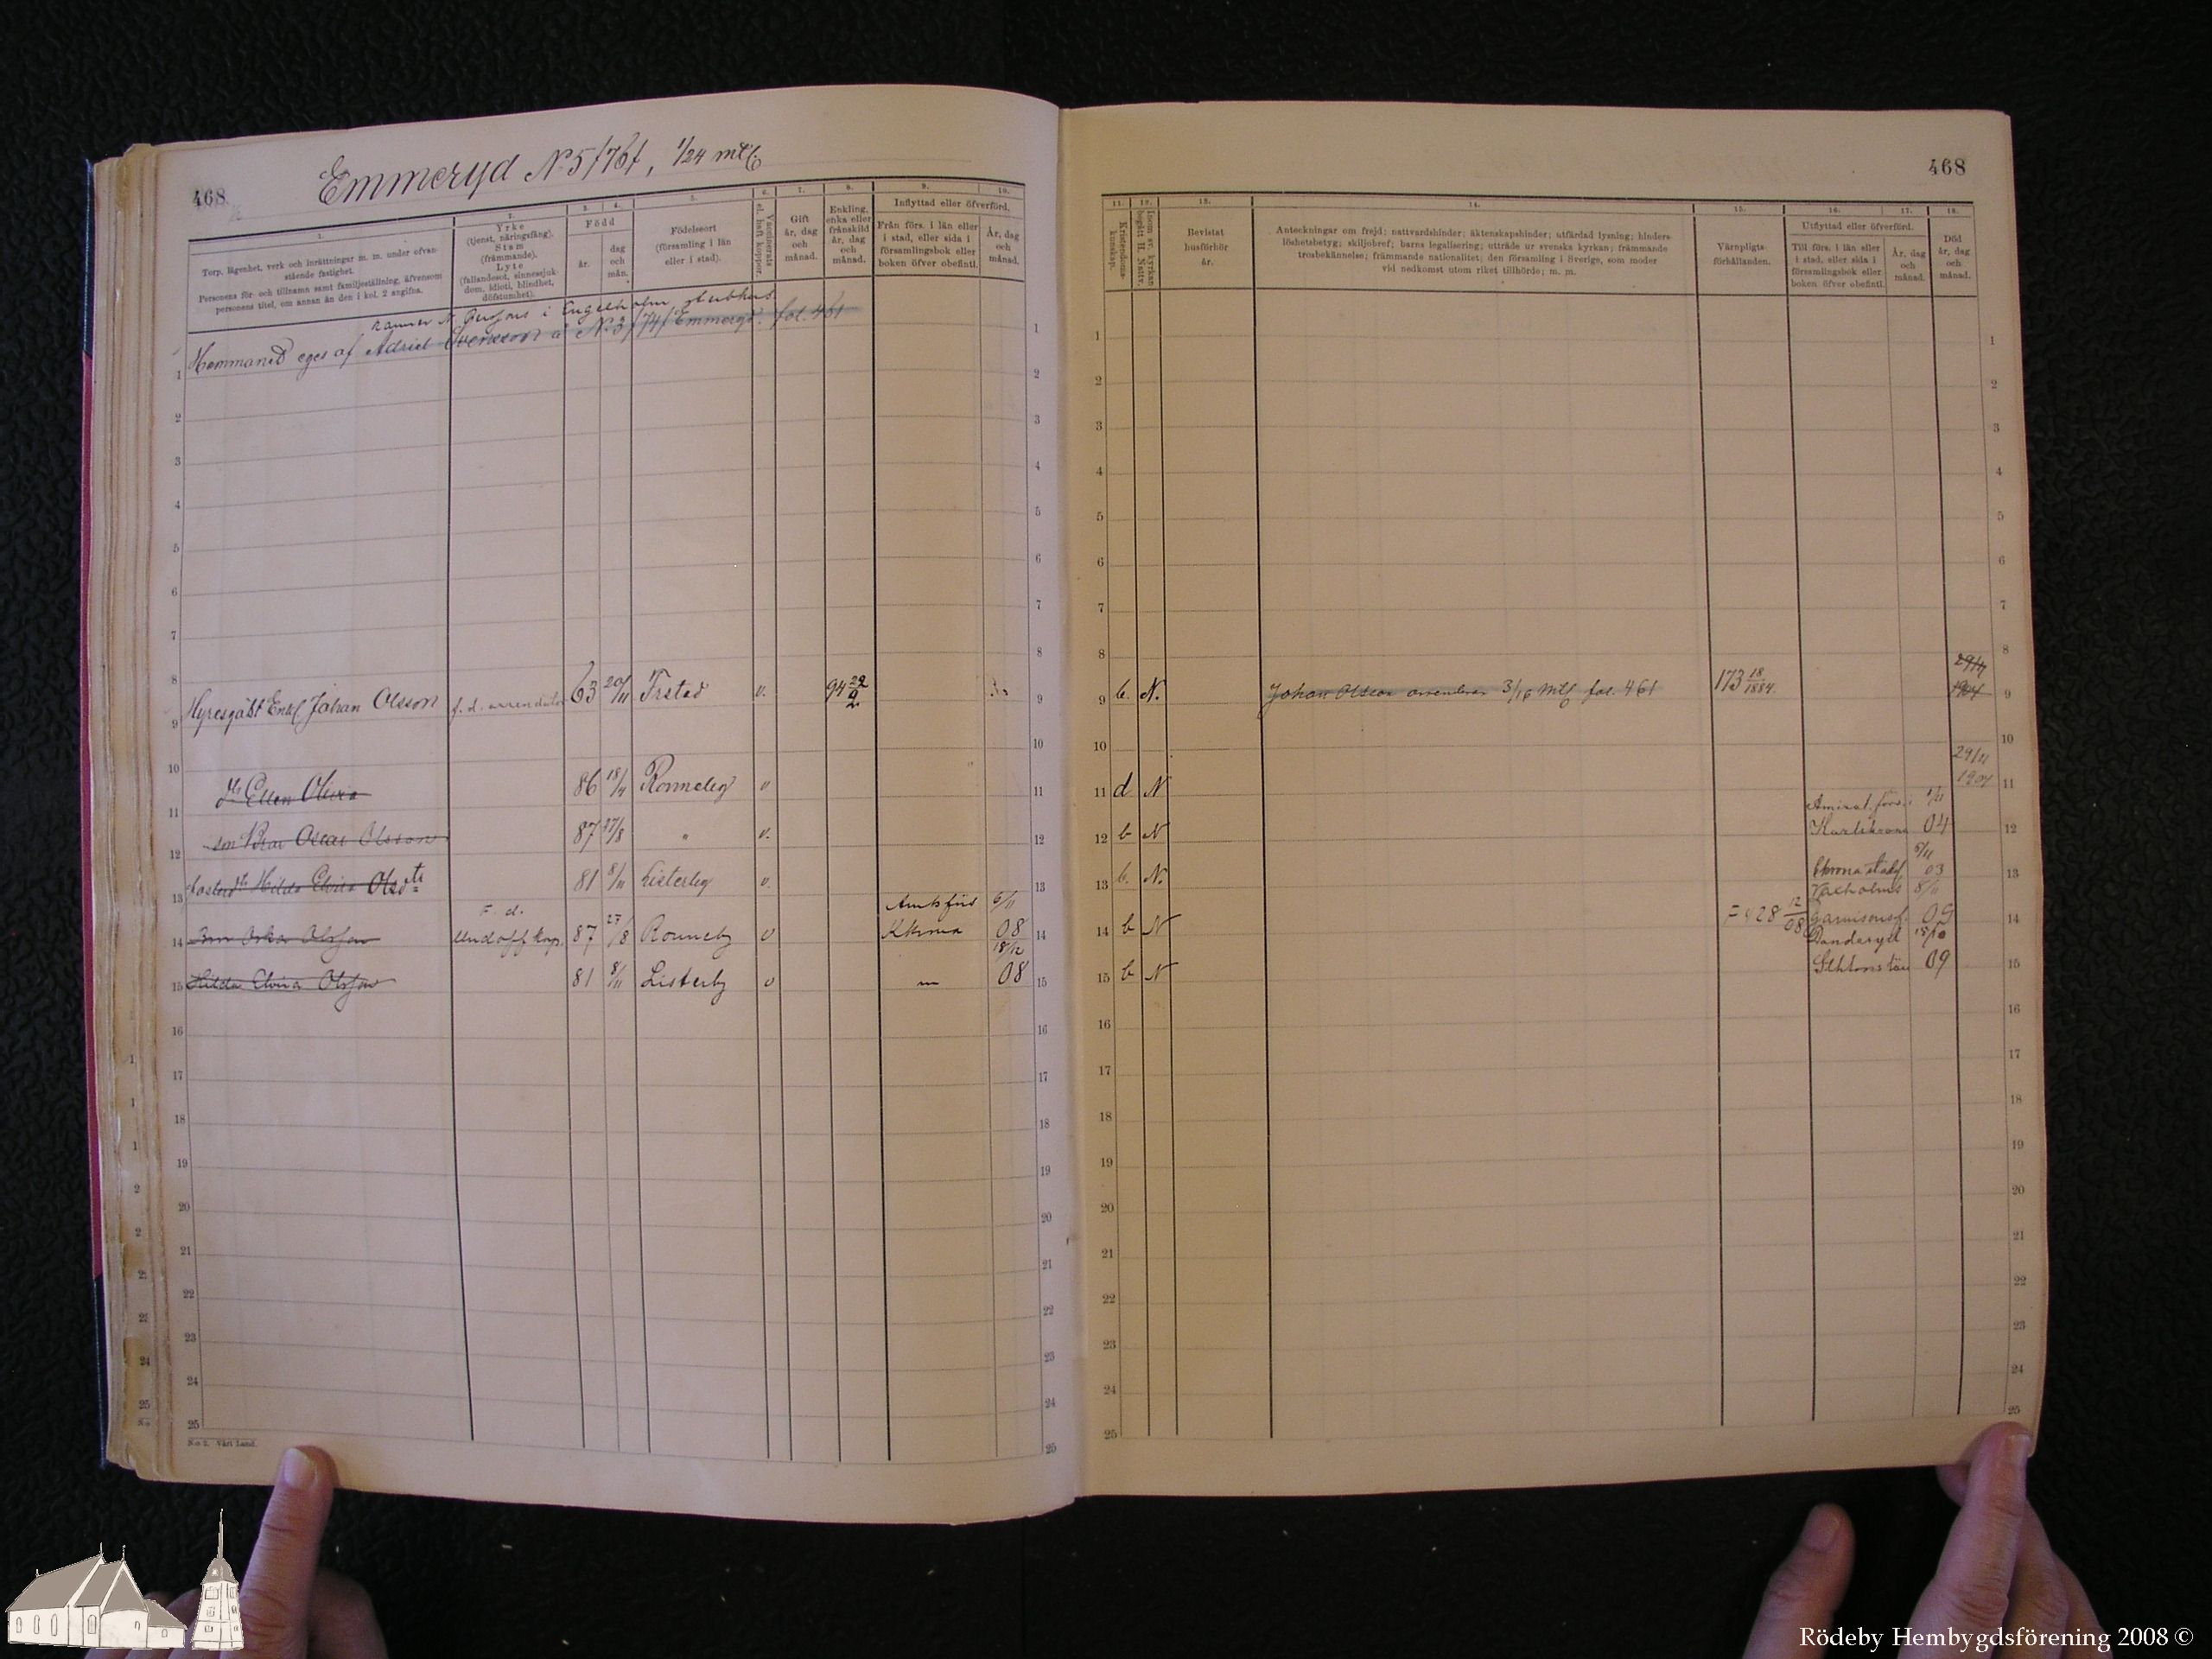 468
Emmeryd No 5/76/, 1/24 mtl
1. 2. 3. 4. 5. 6. 7. 8. 9. 10.
Torp, lägenhet, verk och inrättningar m. m. under ofvan-
stående fastighet.
Personens för- och tillnamn samt familjeställning, äfvensom
personens titel, om annan än den i kol. 2 angifna.
Yrke
(tjenst, näringsfång).
Stam
(främmande).
Lyte
(fallandesot, sinnessjuk-
dom, idioti, blindhet,
döfstumhet).
Född
år.
dag
och
mån.
Födelseort
(församling i län
eller i stad).
Vaccinerats
el. haft koppor.
Gift
år, dag
och
månad.
Enkling,
enka eller
frånskild
år, dag
och
månad.
Inflyttad eller öfverförd.
Från förs. i län eller
i stad, eller sida i
församlingsbok eller
boken öfver obefintl.
År, dag
och
månad.
N. Perssons i Engelholm, sterbhus.
Hemmanet eges af Adriel Svensson å No 3/74/ Emmeryd. fol. 461
Hyresgäst Enkl. Johan Olsson f. d. arrendator 63 20/11 Trstad v. 94 22/2
dr Ellen Olivia 86 18/4 Ronneby v
son Bror Oscar Olsson 87 27/8 " v.
fosterdr Hilda Elvira Olsdtr 81 8/11 Listerby v.
F. d.
Bror Oskar Olsson Undoff. korp. 87 27/8 Ronneby v Amtsförs Kkrona 6/11 08
Hilda Elvira Olsson 81 8/11 Listerby v — 18/12 08
1 2 3 4 5 6 7 8 9 10 11 12 13 14 15 16 17 18 19 20 21 22 23 24 25
N:o 2. Vårt Land.
468
11. 12. 13. 14. 15. 16. 17. 18.
Kristendoms-
kunskap.
Inom sv. kyrkan
begått H. Nattv.
Bevistat
husförhör
år.
Anteckningar om frejd; nattvardshinder; äktenskapshinder; utfärdad lysning; hinders-
löshetsbetyg; skiljobref; barns legalisering; utträde ur svenska kyrkan; främmande
trosbekännelse; främmande nationalitet; den församling i Sverige, som moder
vid nedkomst utom riket tillhörde; m. m.
Värnpligts-
förhållanden.
Utflyttad eller öfverförd.
Till förs. i län eller
i stad, eller sida i
församlingsbok eller
boken öfver obefintl.
År, dag
och
månad.
Död
år, dag
och
månad.
b. N. Johan Olsson arrenderar 3/16 mtl fol. 461 173 18/1884. 29/11 1904
d N 29/11 1904
b N Amiral. förs. i Karlskrona 1/11 04
b. N. Ckrona stadsf 5/11 03
b N 428 12/08 Vaxholms garnisonsf. 8/11 09
b N Danderyd Sthlms län 18/10 09
1 2 3 4 5 6 7 8 9 10 11 12 13 14 15 16 17 18 19 20 21 22 23 24 25
Rödeby Hembygdsförening 2008 ©